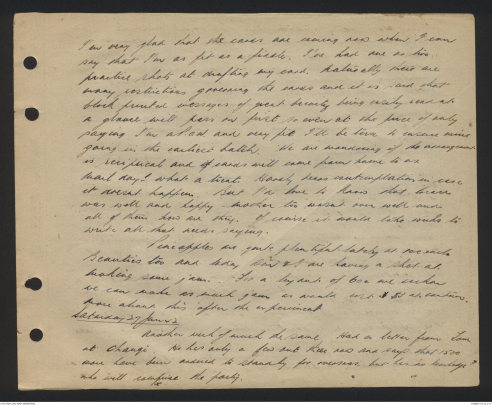 I'm very glad that the cards are coming now when I can
say that I'm as fit as a fiddle. I've had one or two
practice shots at drafting my card. Naturally there are
many restrictions governing the cards and it is said that
block printed messages of great brevity being easily read at
a glance will pass on first so even at the price of only
saying I'm at and very fit I'll be sure to ensure mine
going in the earliest batch. We are wondering if the arrangement
is reciprical and if cards will come from home to us
mail day! What a treat. Hardly bears contemplation in case
it doesnt happen. But I'd love to know that
was well and happy - mother too wasnt over well and
all of them how are they. Of course it would take weeks to
write all that needs saying.
Pineapples are quite plentiful lately at
Beauties too and today & I are having a shot at
making some jam. For a layout of we reckon
we can make as much jam as would cost $ at canteen.
More about this after the experiment
Saturday 27 June 42
Another week of much the same. Had a letter from
at Changi. He has only a few out there now and says that 1500
men have been ordered to standby for overseas but has no knowledge
who will comprise the party.